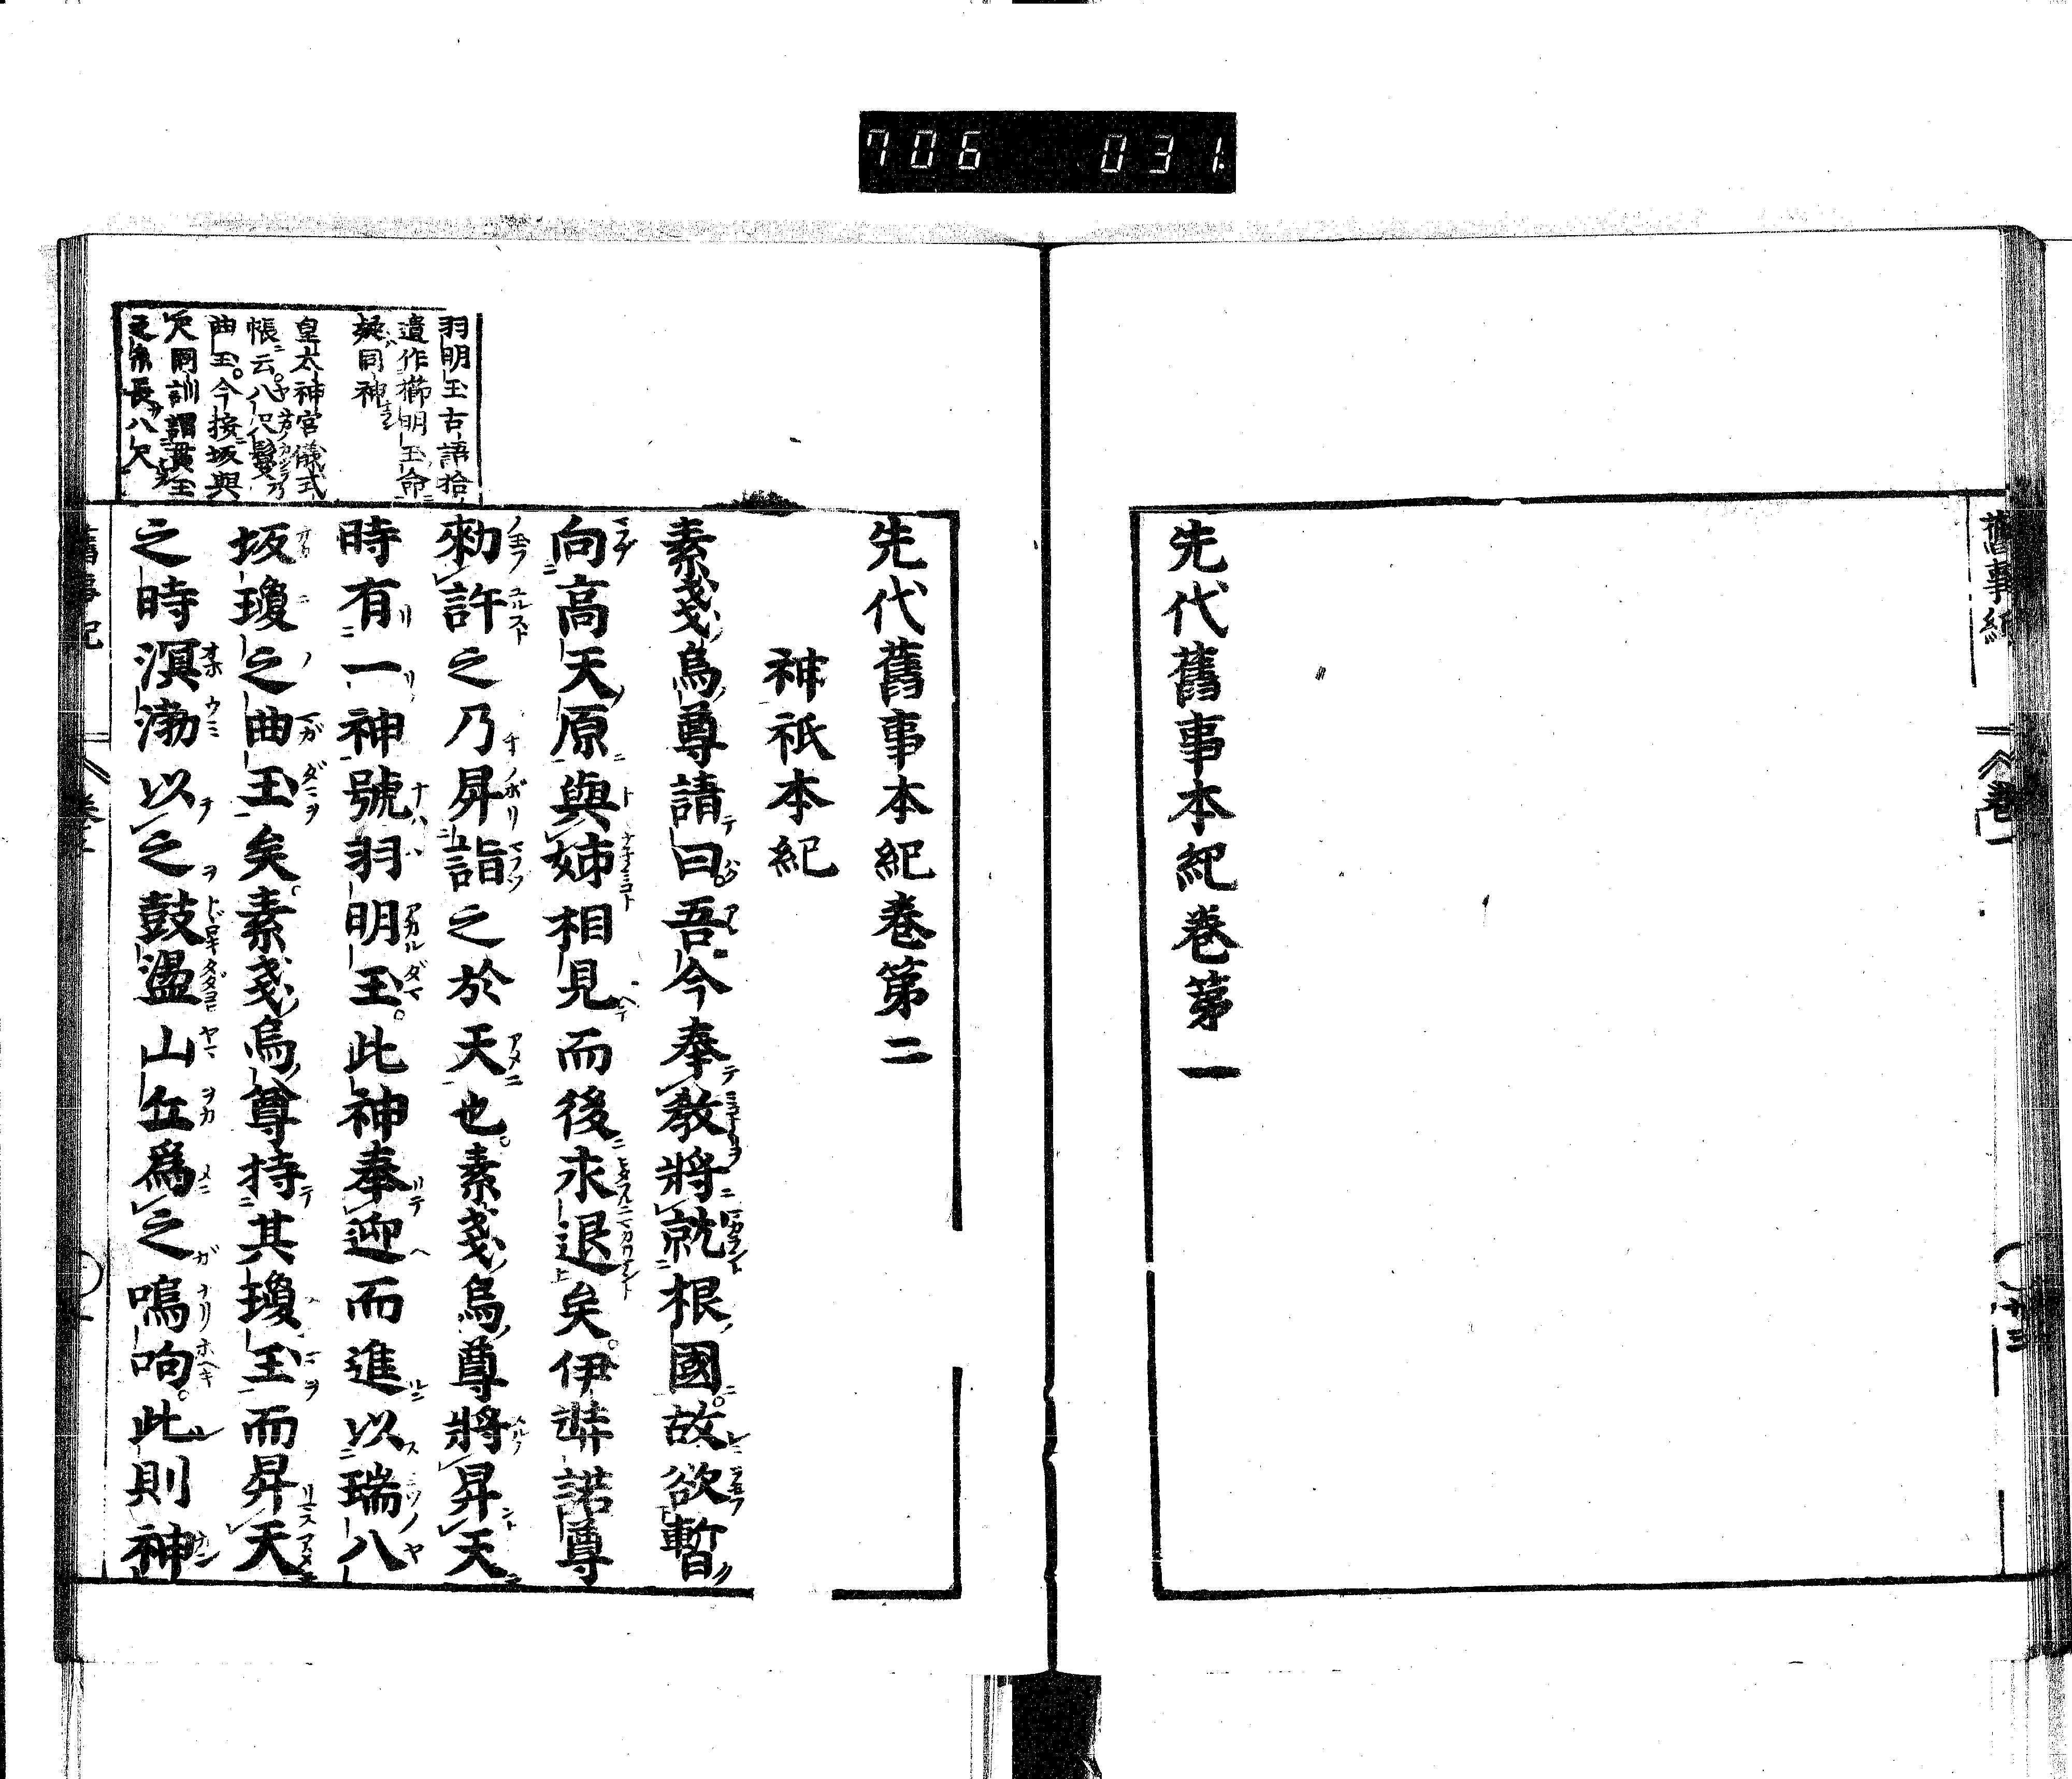 706 031
舊事紀
卷一
廿三
先代舊事本紀卷第一
先代舊事本紀卷第二
神祇本紀
素戔烏尊請曰吾今奉教將就根國故欲暫
向高天原與姉相見而後永退矣伊弉諾尊
勑許之乃昇詣之於天也素戔烏尊將昇天
時有一神號羽明玉此神奉迎而進以瑞八
坂瓊之曲玉矣素戔烏尊持其瓊玉而昇天
之時溟渤以之鼓盪山丘爲之嗚呴此則神
羽明玉古語拾
遺作櫛明玉命
疑同神
皇太神宮儀式
帳云八尺鬘
曲玉今按坂與
尺同訓謂貫玉
之緒長八尺
舊事紀